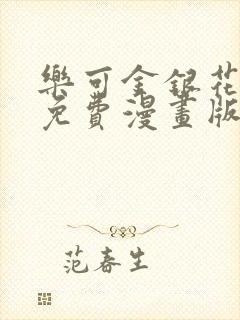 樂可金銀花
免費漫畫版
范春生